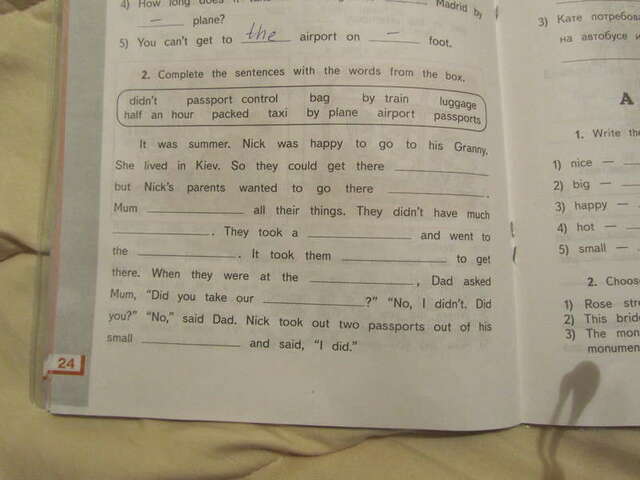 4) How long does it Madrid by
– plane?
5) You can't get to the airport on – foot.
2. Complete the sentences with the words from the box.
didn't passport control bag by train luggage
half an hour packed taxi by plane airport passports
It was summer. Nick was happy to go to his Granny.
She lived in Kiev. So they could get there ____________
but Nick's parents wanted to go there ____________.
Mum ____________ all their things. They didn't have much
____________. They took a ____________ and went to
the ____________. It took them ____________ to get
there. When they were at the ____________, Dad asked
Mum, "Did you take our ____________?" "No, I didn't. Did
you?" "No," said Dad. Nick took out two passports out of his
small ____________ and said, "I did."
24
3) Кате
на автобусе и
A
1. Write the
1) nice —
2) big —
3) happy —
4) hot —
5) small —
2. Choos
1) Rose stre
2) This brid
3) The mon
monumen